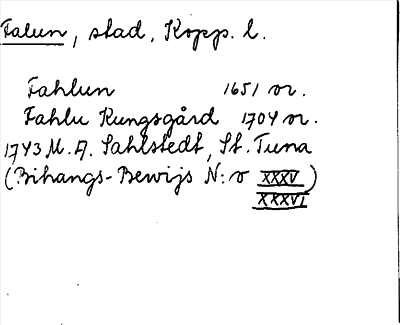 Falun, stad, Kopp. l.
Fahlun 1651 or.
Fahlu Kungsgård 1704 or.
1743 M. A. Sahlstedt, St. Tuna
(Bihangs-Bewijs N:o XXXV)
XXXVI